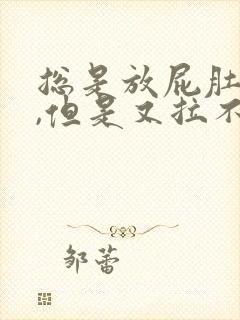 总是放屁肚
,但是又拉不
邹蕾